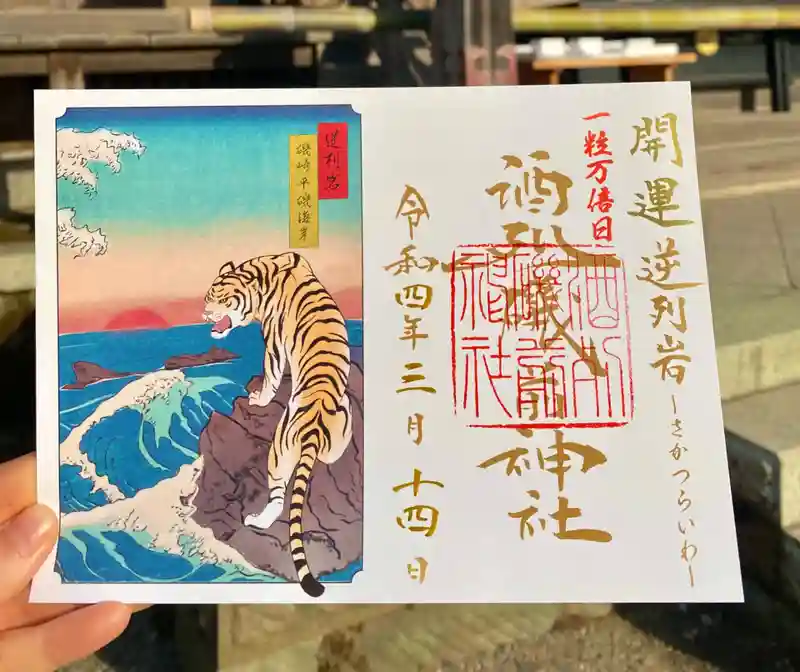 開運 逆列岩
ーさかつらいわー
一粒万倍日
酒列磯前神社
酒列磯前神社
令和四年三月 十四日
逆列岩
磯崎 平磯海岸